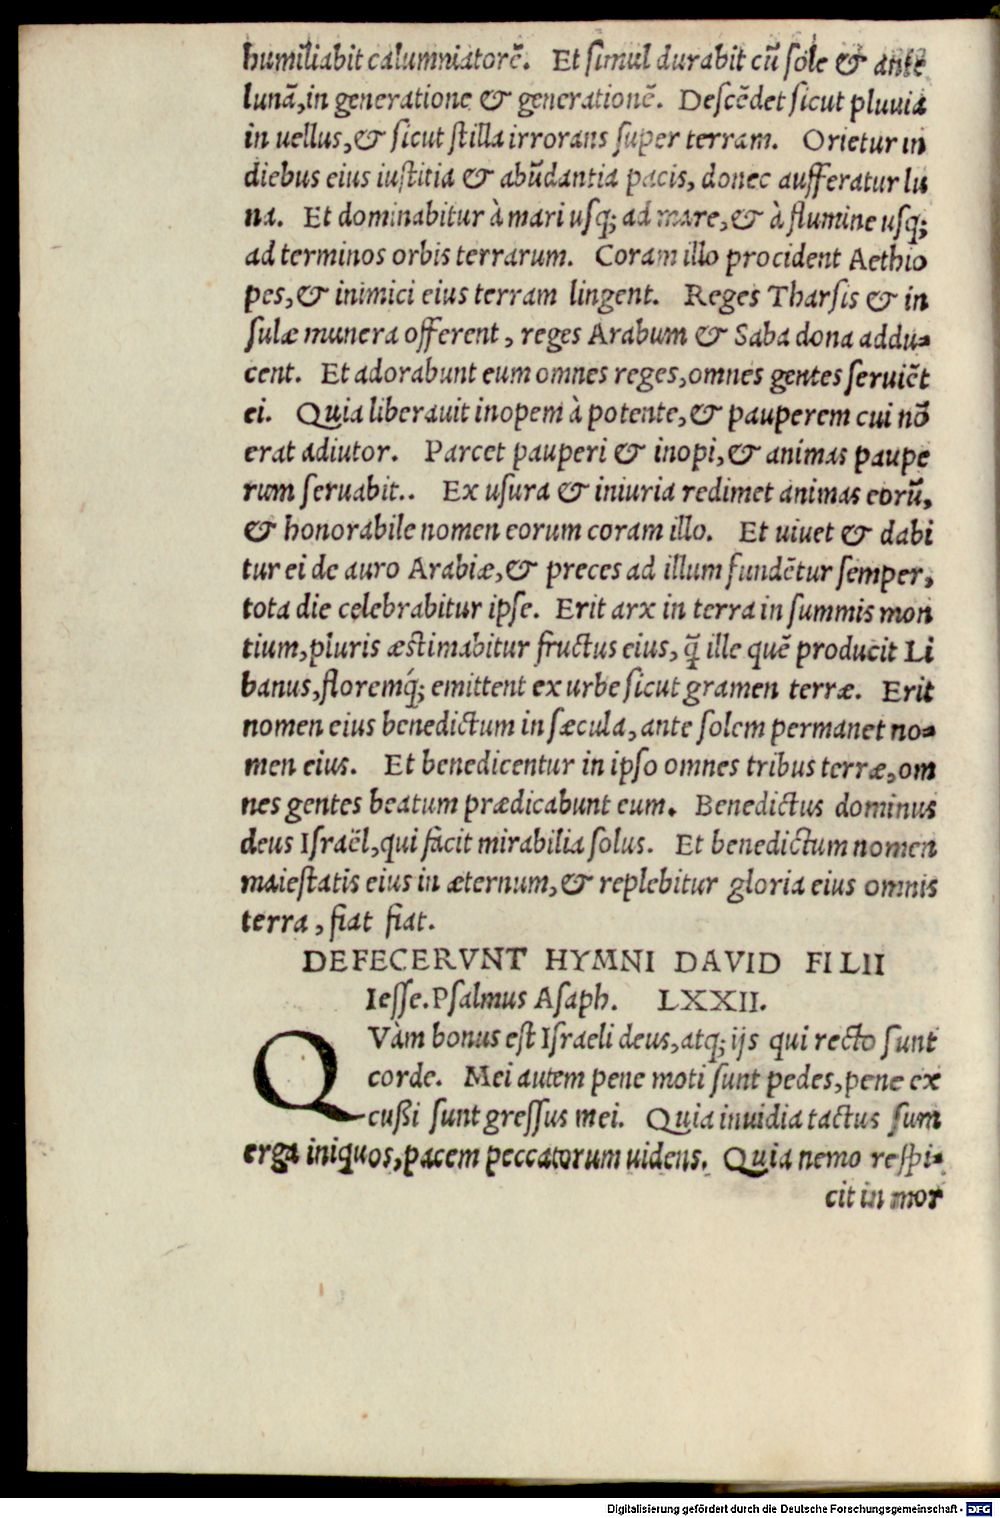 humiliabit calumniatorē. Et simul durabit cū sole & ante
lunā, in generatione & generationē. Descēdet sicut pluuia
in uellus, & sicut stilla irrorans super terram. Orietur in
diebus eius iustitia & abūdantia pacis, donec aufferatur lu
na. Et dominabitur à mari usq; ad mare, & à flumine usq;
ad terminos orbis terrarum. Coram illo procident Aethio
pes, & inimici eius terram lingent. Reges Tharsis & in
sulæ munera offerent, reges Arabum & Saba dona addu-
cent. Et adorabunt eum omnes reges, omnes gentes seruiēt
ei. Quia liberauit inopem à potente, & pauperem cui nō
erat adiutor. Parcet pauperi & inopi, & animas paupe
rum seruabit.. Ex usura & iniuria redimet animas eorū,
& honorabile nomen eorum coram illo. Et uiuet & dabi
tur ei de auro Arabiæ, & preces ad illum fundētur semper,
tota die celebrabitur ipse. Erit arx in terra in summis mon
tium, pluris æstimabitur fructus eius, q̄ ille quē producit Li
banus, floremq́; emittent ex urbe sicut gramen terræ. Erit
nomen eius benedictum in sæcula, ante solem permanet no-
men eius. Et benedicentur in ipso omnes tribus terræ, om
nes gentes beatum prædicabunt eum. Benedictus dominus
deus Israël, qui facit mirabilia solus. Et benedictum nomen
maiestatis eius in æternum, & replebitur gloria eius omnis
terra, fiat fiat.
DEFECERVNT HYMNI DAVID FILII
Iesse. Psalmus Asaph. LXXII.
QVàm bonus est Israeli deus, atq; ijs qui recto sunt
corde. Mei autem pene moti sunt pedes, pene ex
cußi sunt gressus mei. Quia inuidia tactus sum
erga iniquos, pacem peccatorum uidens. Quia nemo respi-
cit in mor
Digitalisierung gefördert durch die Deutsche Forschungsgemeinschaft - DFG